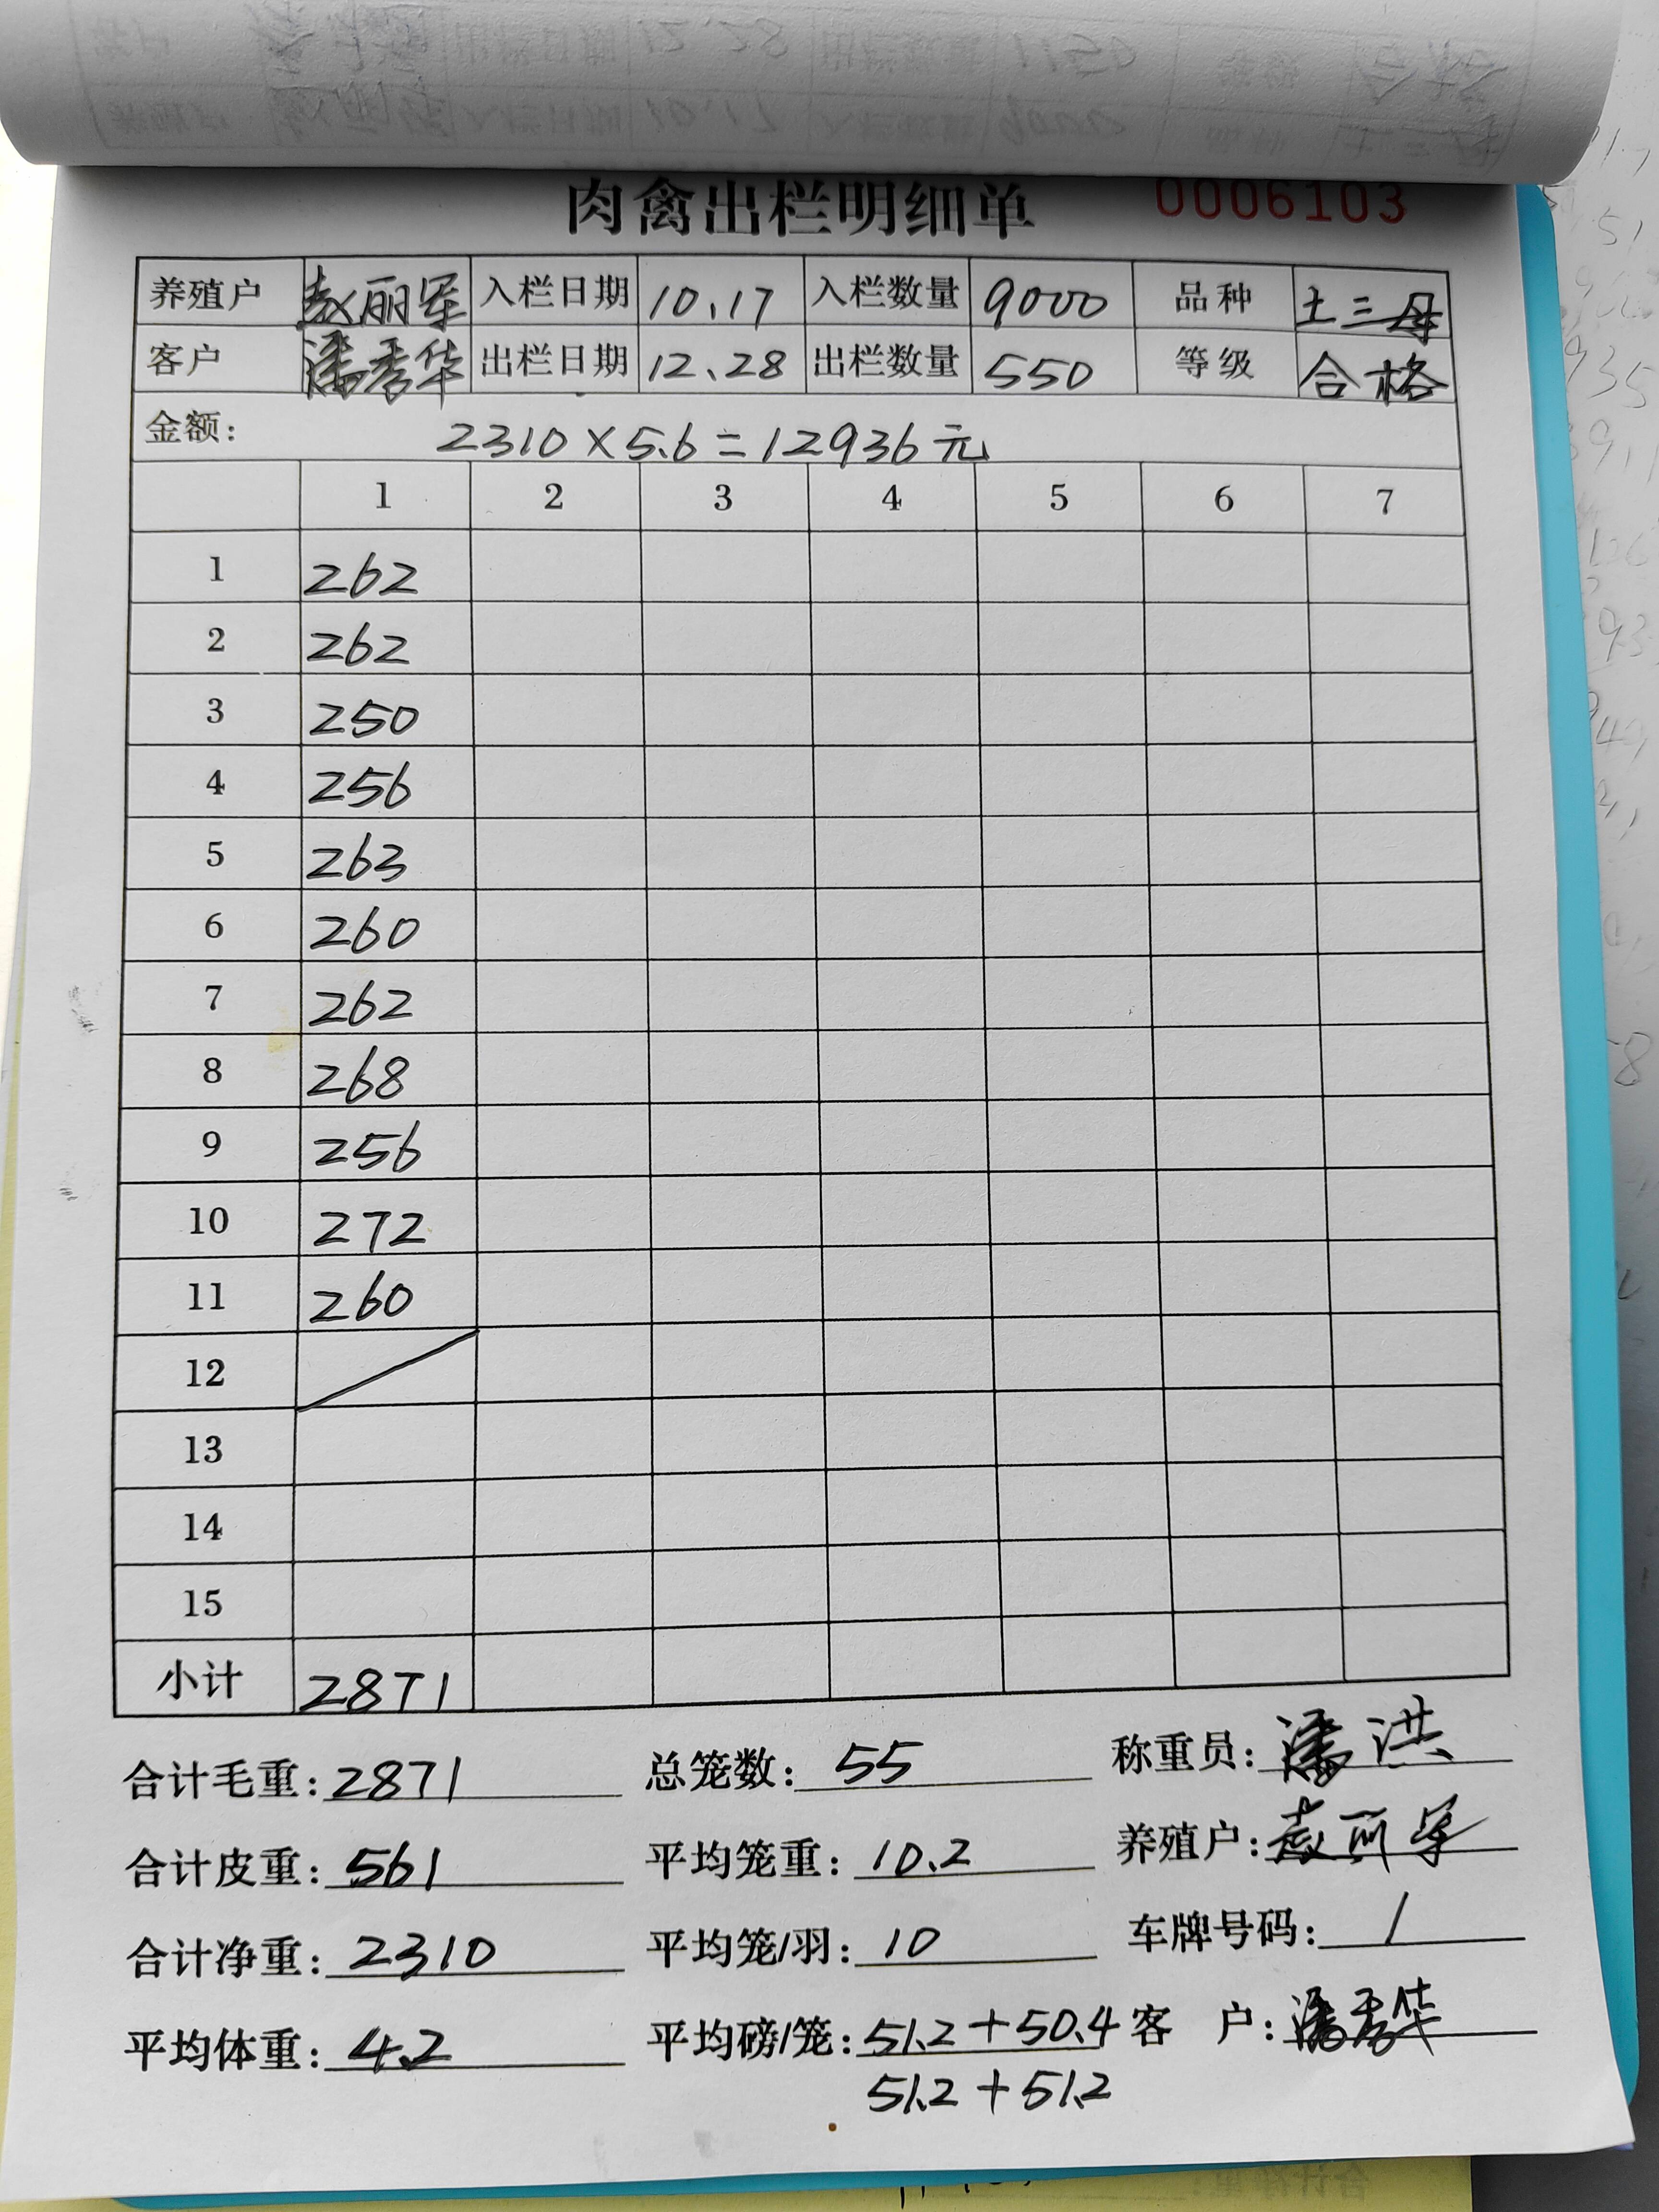 肉禽出栏明细单 0006103
养殖户 赵丽军 入栏日期 10.17 入栏数量 9000 品种 土三母
客户 潘秀华 出栏日期 12.28 出栏数量 550 等级 合格
金额: 2310×5.6=12936元
1 2 3 4 5 6 7
1 262
2 262
3 250
4 256
5 263
6 260
7 262
8 268
9 256
10 272
11 260
12
13
14
15
小计 2871
合计毛重: 2871 总笼数: 55 称重员: 潘洪
合计皮重: 561 平均笼重: 10.2 养殖户: 赵丽军
合计净重: 2310 平均笼/羽: 10 车牌号码: /
平均体重: 4.2 平均磅/笼: 51.2+50.4 客 户: 潘秀华
51.2+51.2